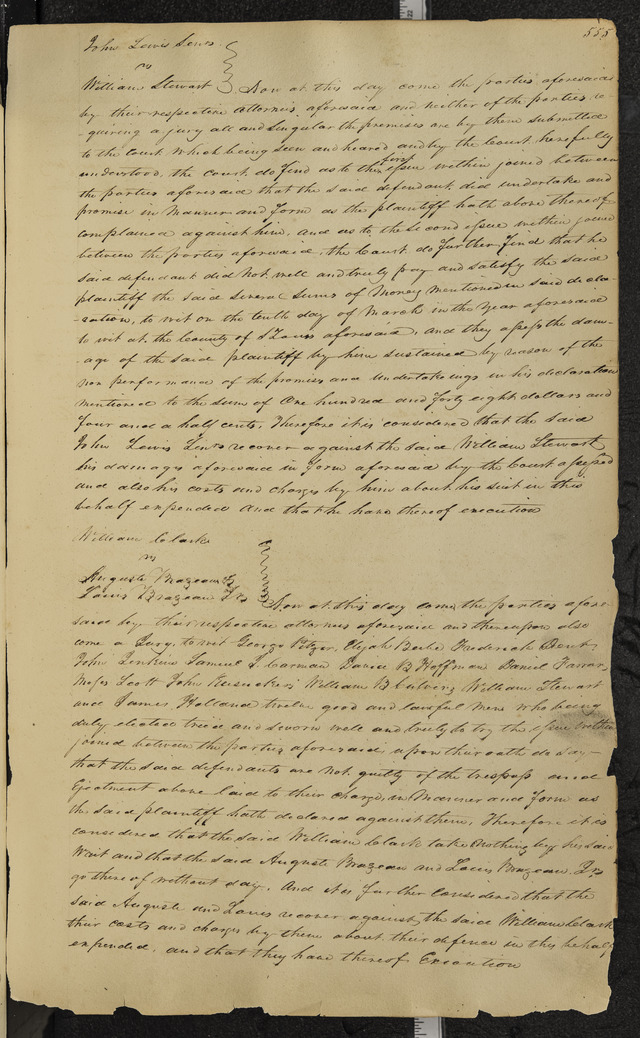 555
John Lewis Lents
vs
William Stewart Now at this day come the parties aforesaid
by their respective attornies aforesaid and neither of the parties re-
quiring a jury all and singular the premises are by them submitted
to the Court which being seen and heard and by the Court here fully
understood, the court do find as to the first issue within joined between
the parties aforesaid that the said defendant did undertake and
promise in manner and form as the plaintiff hath above thereof
complained against him, and as to the second issue within joined
between the parties aforesaid, the Court do further find that he
said defendant did not well and truly pay and satisfy the said
plaintiff the said several sums of money mentioned in said decla-
-ration, to wit on the tenth day of March in the year aforesaid
to wit at the County of St Louis aforesaid, and they assess the dam-
age of the said plaintiff by him sustained by reason of the
non performance of the promises and undertakings in his declaration
mentioned to the sum of One hundred and forty eight dollars and
four and a half cents, Therefore it is considered that the said
John Lewis Lents recover against the said William Stewart
his damages aforesaid in form aforesaid by the Court assessed
and also his costs and charges by him about his suit in this
behalf expended and that he have thereof execution
William Clark
vs
Auguste Brazeau &
Louis Brazeau Jr Now at this day come the parties afore-
said by their respective attornies aforesaid and thereupon also
come a Jury, to wit George Pitzer, Elijah Frederick Dent,
John Jenkins Samuel I. Carman David B Hoffman Daniel Farrar,
Moses Scott John William B Culver, William Stewart
and James Holland twelve good and lawful men who being
duly elected tried and sworn well and truly to try the issue within
joined between the parties aforesaid upon their oath do say
that the said defendants are not guilty of the trespass and
Ejectment above laid to their charge, in manner and form as
the said plaintiff hath declared against them, Therefore it is
considered that the said William Clark take nothing by his said
Writ and that the said Auguste Brazeau and Louis Brazeau Jr
go thereof without day. And it is further considered that the
said Auguste and Louis recover against the said William Clark
their costs and charges by them about their defence in this behalf
expended, and that they have thereof Execution